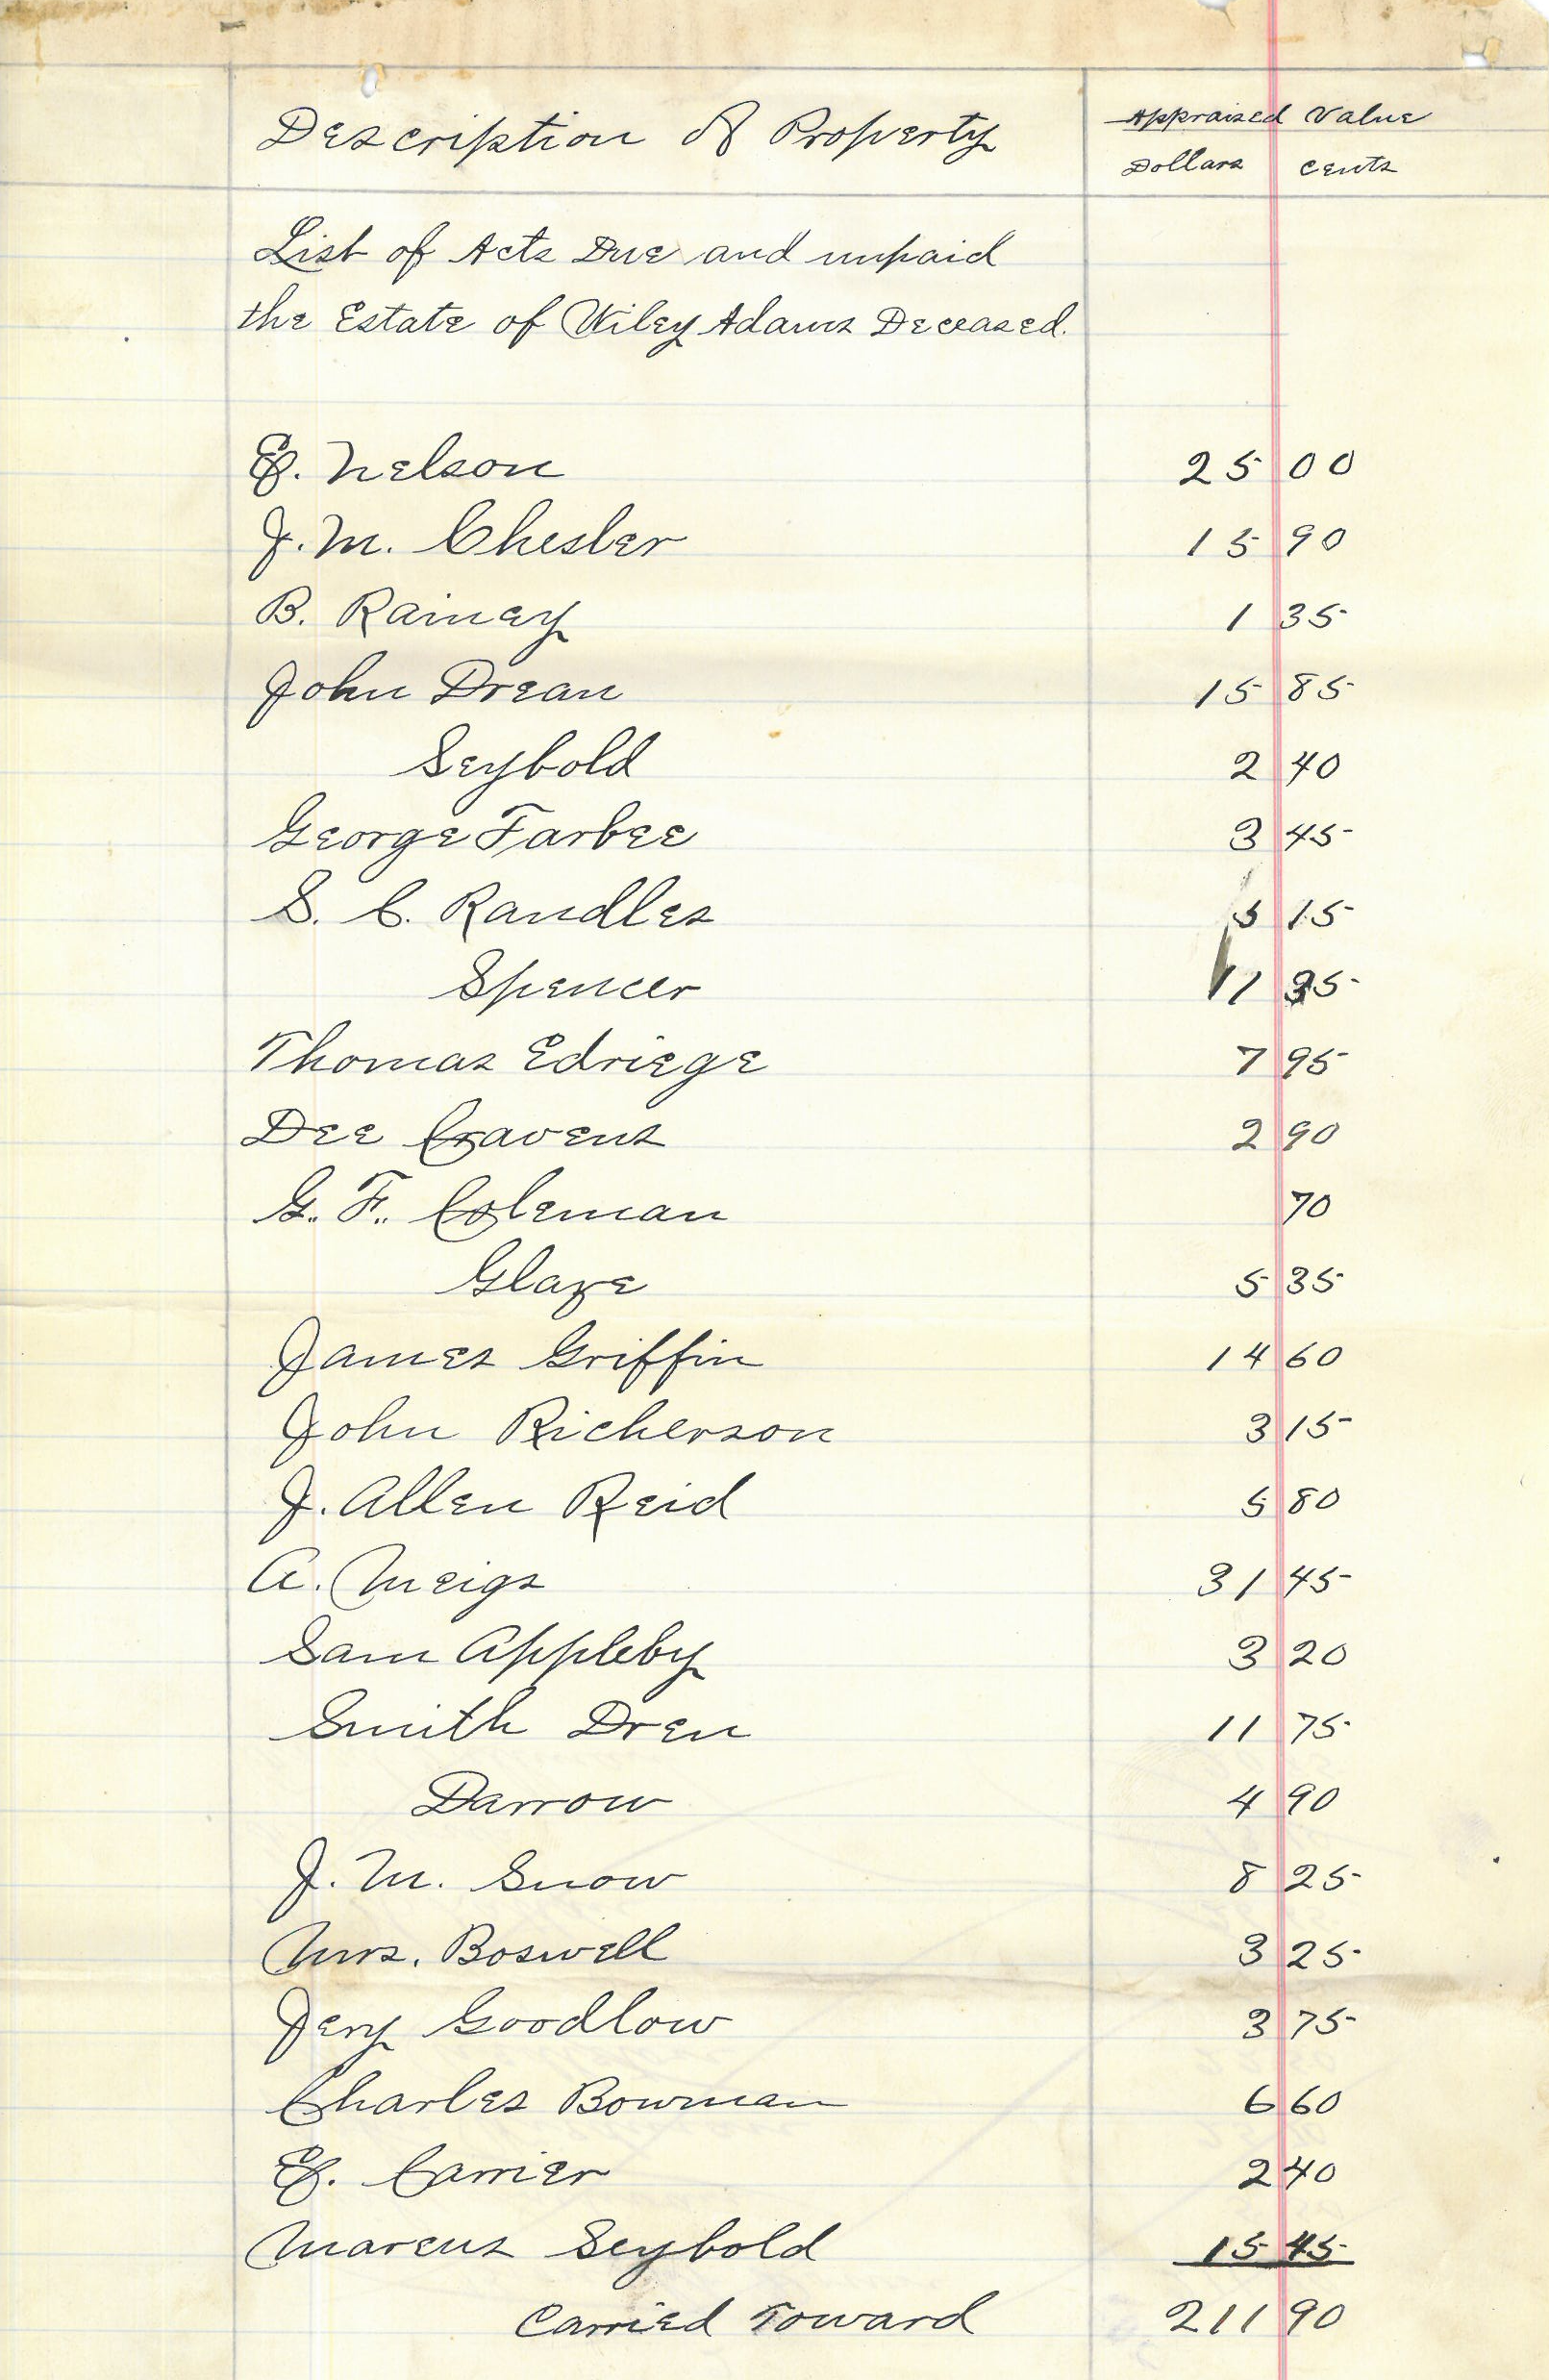 Description Of Property Appraised Value
Dollars cents
List of Acts Due and unpaid
the Estate of Wiley Adams Deceased.
E. Nelson 25 00
J. M. Chesler 15 90
B. Rainey 1 35
John Drean 15 85
Seybold 2 40
George Farbee 3 45
S. C. Randles 5 15
Spencer 11 35
Thomas Edriege 7 95
Dee Cravens 2 90
G. F. Coleman 70
Glaze 5 35
James Griffin 14 60
John Richerson 3 15
J. Allen Reid 5 80
A. Meigs 31 45
Sam Appleby 3 20
Smith Dren 11 75
Darrow 4 90
J. M. Snow 8 25
Mrs. Boswell 3 25
Jery Goodlow 3 75
Charles Bowman 6 60
E. Carrier 2 40
Marcus Seybold 15 45
Carried Toward 211 90